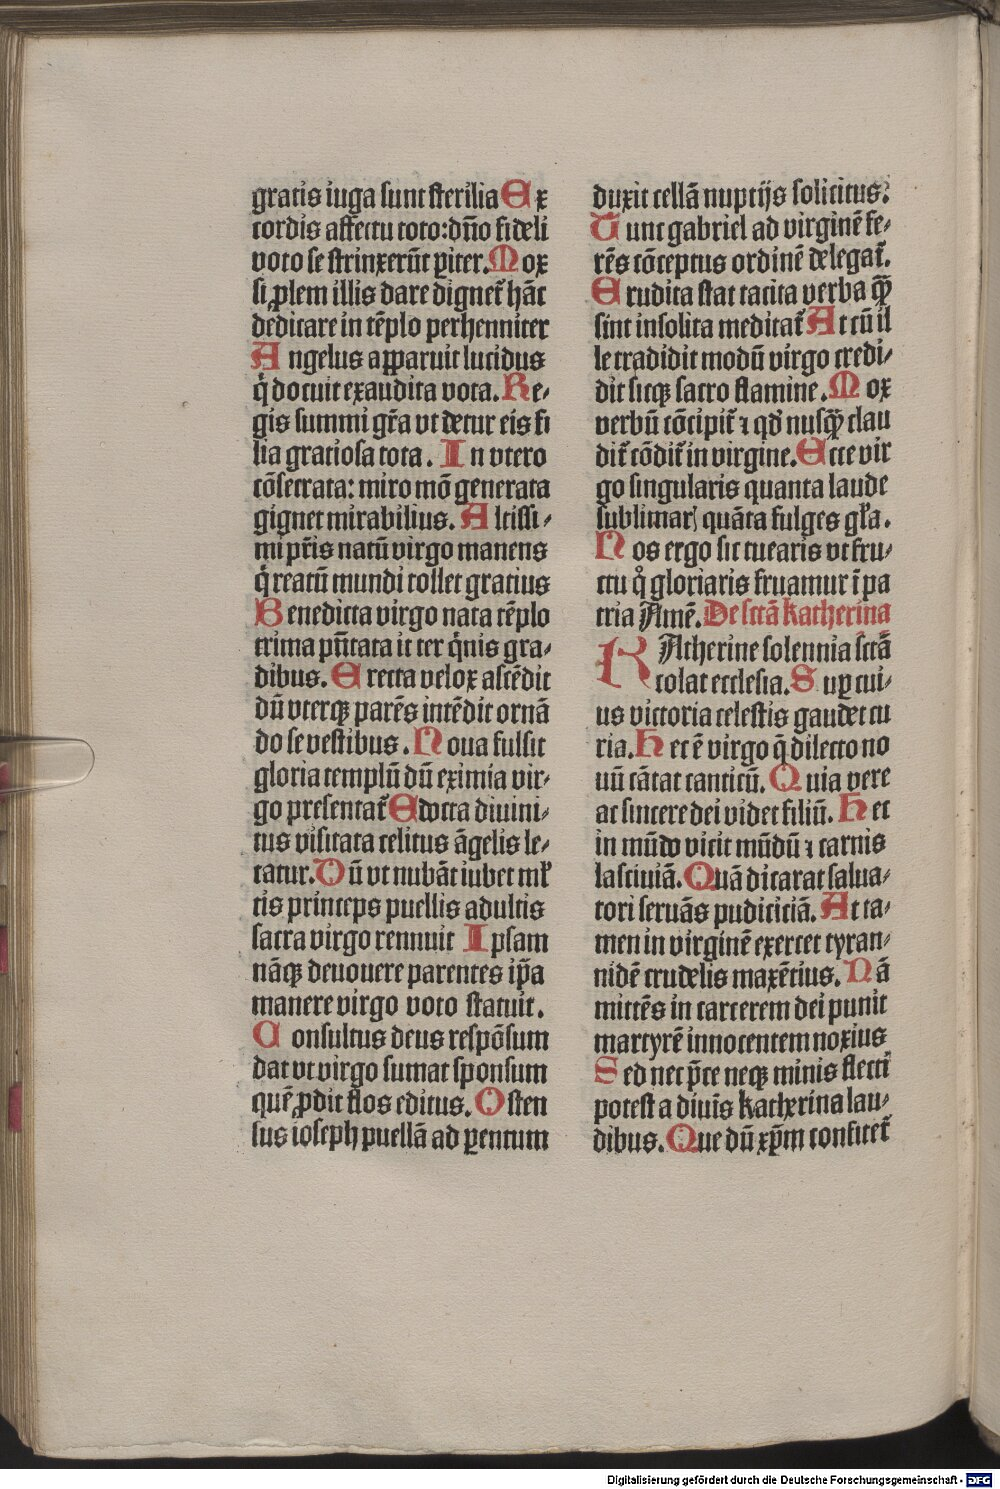 gratis iuga sunt sterilia Ex
cordis affectu toto: dño fideli
voto se strinxerũt ꝑiter. Mox
si ꝓlem illis dare dignet᷑ hãc
dedicare in tẽplo perhenniter
Angelus apparuit lucidus
q̇ docuit exaudita vota. Re⸗
gis summi gr̃a vt detur eis fi
lia gratiosa tota. In vtero
cõsecrata: miro mõ generata
gignet mirabilius. Altissi⸗
mi pr̃is natũ virgo manens
q̇ reatũ mundi tollet gratius
Benedicta virgo nata tẽplo
trima pñtata it ter q̇nis gra⸗
dibus. Erecta velox ascẽdit
dũ vterqꝫ parẽs intẽdit ornã
do se vestibus. Noua fulsit
gloria templũ dũ eximia vir⸗
go presentat᷑ Edocta diuini⸗
tus visitata celitus ãgelis le⸗
tatur. Dũ vt nubãt iubet ml̃
tis princeps puellis adultis
sacra virgo rennuit Ipsam
nãqꝫ deuouere parentes ip̃a
manere virgo voto statuit.
Consultus deus respõsum
dat vt virgo sumat sponsum
quẽ ꝓdit flos editus. Osten
sus ioseph puellã ad ꝑentum
duxit cellã nuptijs solicitus.
Tunc gabriel ad virginẽ fe⸗
rẽs cõceptus ordinẽ delegat᷑.
Erudita stat tacita verba qꝫ̃
sint insolita meditat᷑ At cũ il
le tradidit modũ virgo credi⸗
dit sicqꝫ sacro flamine. Mox
verbũ cõcipit᷑ ⁊ qd̃ nusqꝫ̃ clau
dit᷑ cõdit᷑ in virgine. Ecce vir
go singularis quanta laude
sublimarꝭ quãta fulges gl̃a.
Nos ergo sic tuearis vt fru⸗
ctu q̊ gloriaris fruamur ĩ pa
tria Amẽ. De sctã katherina
KAtherine solennia sctã
colat ecclesia. Suꝑ cui⸗
us victoria celestis gaudet cu
ria. Hec ẽ virgo q̃ dilecto no
uũ cãtat canticũ. Quia vere
ac sincere dei videt filiũ. Hec
in mũdo vicit mũdũ ⁊ carnis
lasciuiã. Quã dicarat salua⸗
tori seruãs pudiciciã. At ta⸗
men in virginẽ exercet tyran⸗
nidẽ crudelis maxẽtius. Nã
mittẽs in carcerem dei punit
martyrẽ innocentem noxius
Sed nec p̃ce neqꝫ minis flecti
potest a diuĩs katherina lau⸗
dibus. Que dũ xp̃m confitet᷑
Digitalisierung gefördert durch die Deutsche Forschungsgemeinschaft - DFG